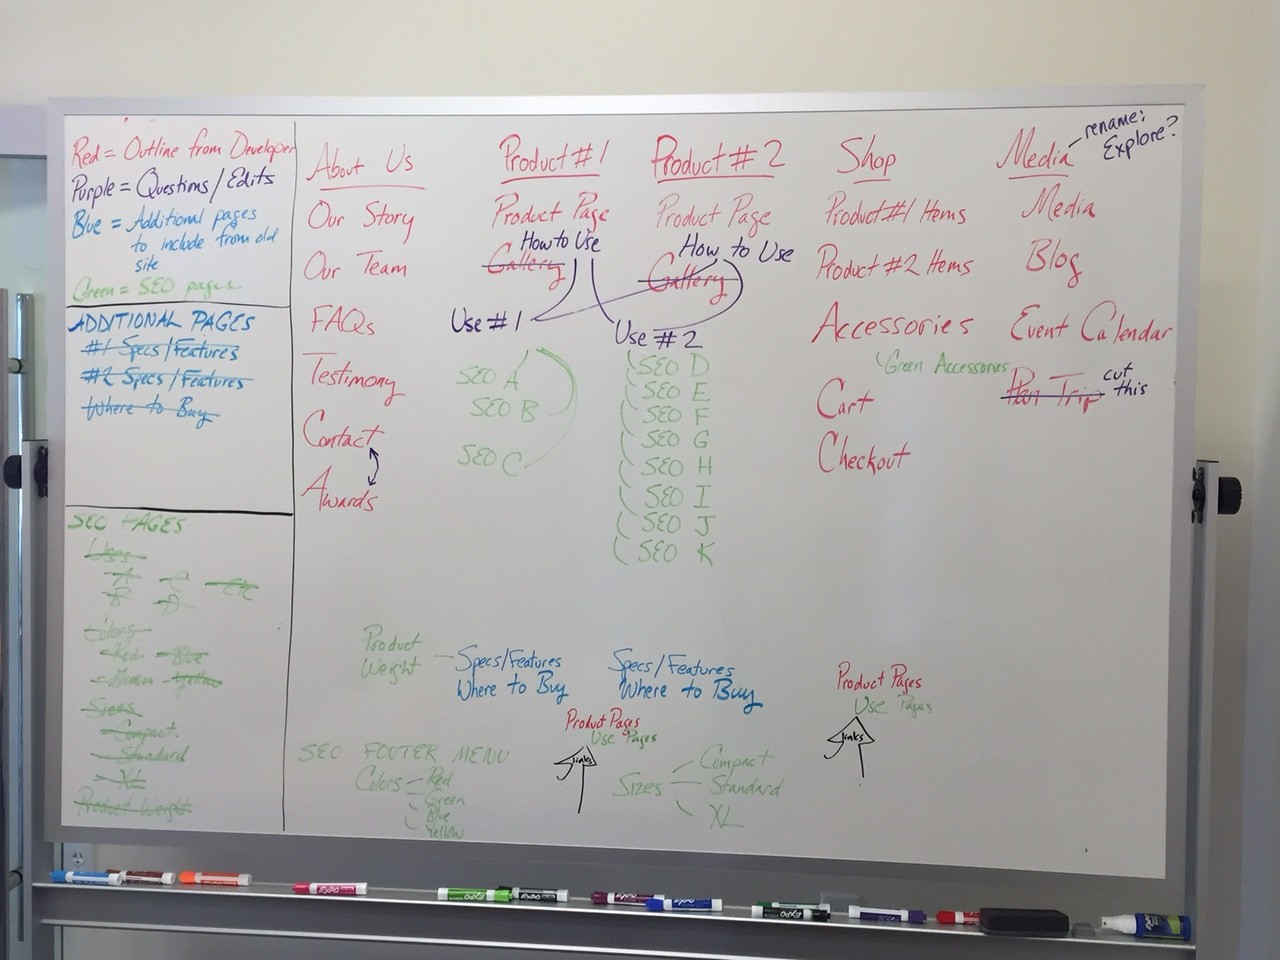 Red = Outline from Developer
Purple = Questions / Edits
Blue = Additional pages
to include from old
site
Green = SEO pages
ADDITIONAL PAGES
#1 Specs/Features
#2 Specs/Features
Where to Buy
SEO PAGES
Uses
A C Etc
B D
Colors
Red Blue
Green Yellow
Sizes
Compact
Standard
XL
Product Weight
About Us
Our Story
Our Team
FAQs
Testimony
Contact
Awards
Product #1
Product Page
How to Use
Gallery
Use #1
SEO A
SEO B
SEO C
Product #2
Product Page
How to Use
Gallery
Use #2
SEO D
SEO E
SEO F
SEO G
SEO H
SEO I
SEO J
SEO K
Shop
Product #1 Items
Product #2 Items
Accessories
Green Accessories
Cart
Checkout
Media
rename:
Explore?
Media
Blog
Event Calendar
Plan Trip
cut
this
Product
Weight
Specs/Features
Where to Buy
Specs/Features
Where to Buy
Product Pages
Use Pages
links
Product Pages
Use Pages
links
SEO FOOTER MENU
Colors
Red
Green
Blue
Yellow
Sizes
Compact
Standard
XL
EXPO
EXPO
EXPO
EXPO